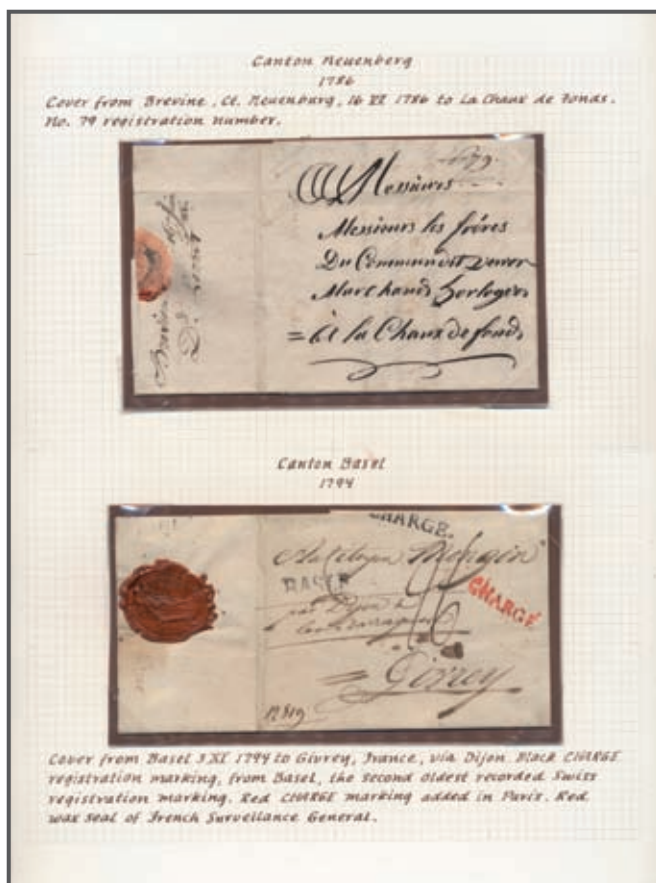 Canton Neuenberg
1786
Cover from Brevine, Ct. Neuenburg, 16 VI 1786 to La Chaux de Fonds.
No. 79 registration number.
79.
Messieurs
Messieurs les frères
Du Commun
Marchands horlogers
= à la Chaux de fonds
Canton Basel
1794
CHARGE.
Au Citoyen Mongin
BASLE
CHARGÉ
par Dijon à
Givrey
N 819
Cover from Basel 3 XI 1794 to Givrey, France, via Dijon. Black CHARGE
registration marking, from Basel, the second oldest recorded Swiss
registration marking. Red CHARGE marking added in Paris. Red
wax seal of French Survellance General.